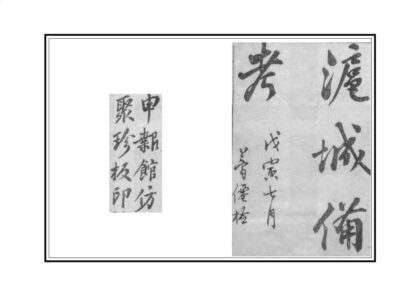 滬城備
考
戊寅七月
僊
申報館仿
聚珍板印